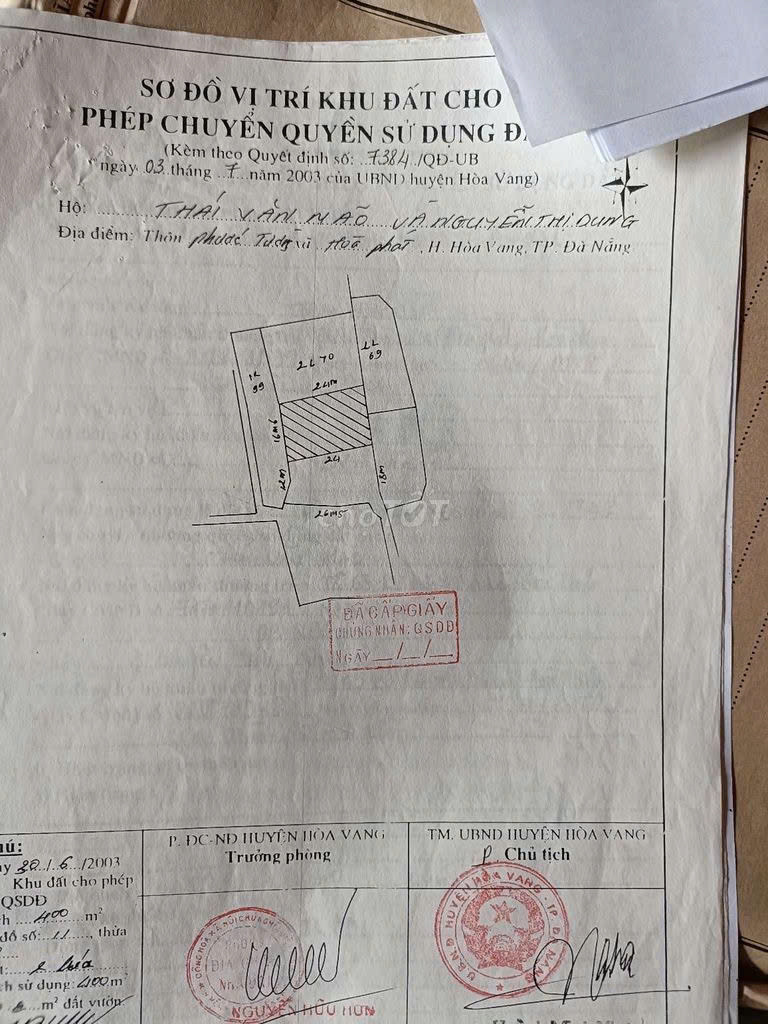 SƠ ĐỒ VỊ TRÍ KHU ĐẤT CHO
PHÉP CHUYỂN QUYỀN SỬ DỤNG
(Kèm theo Quyết định số: 7384/QĐ-UB
ngày 03 tháng 7 năm 2003 của UBND huyện Hòa Vang)
Hộ: THÁI VĂN NÃO VÀ NGUYỄN THỊ DUNG
Địa điểm: Thôn Phước Tường xã Hoà Phát, H. Hòa Vang, TP. Đà Nẵng
2L 70
2L 69
1L 99
24m
16m6
24
12m
18m
26m5
ĐÃ CẤP GIẤY
CHỨNG NHẬN: QSDĐ
NGÀY __/__/__
P. ĐC-NĐ HUYỆN HÒA VANG
Trưởng phòng
NGUYỄN HỮU HÙN
TM. UBND HUYỆN HÒA VANG
P Chủ tịch
U.B.N.D HUYỆN HÒA VANG T.P ĐÀ NẴNG
20/6/2003
Khu đất cho phép
QSDĐ
400 m²
đồ số: 11, thửa
2 lúa
sử dụng: 400 m²
m² đất vườn